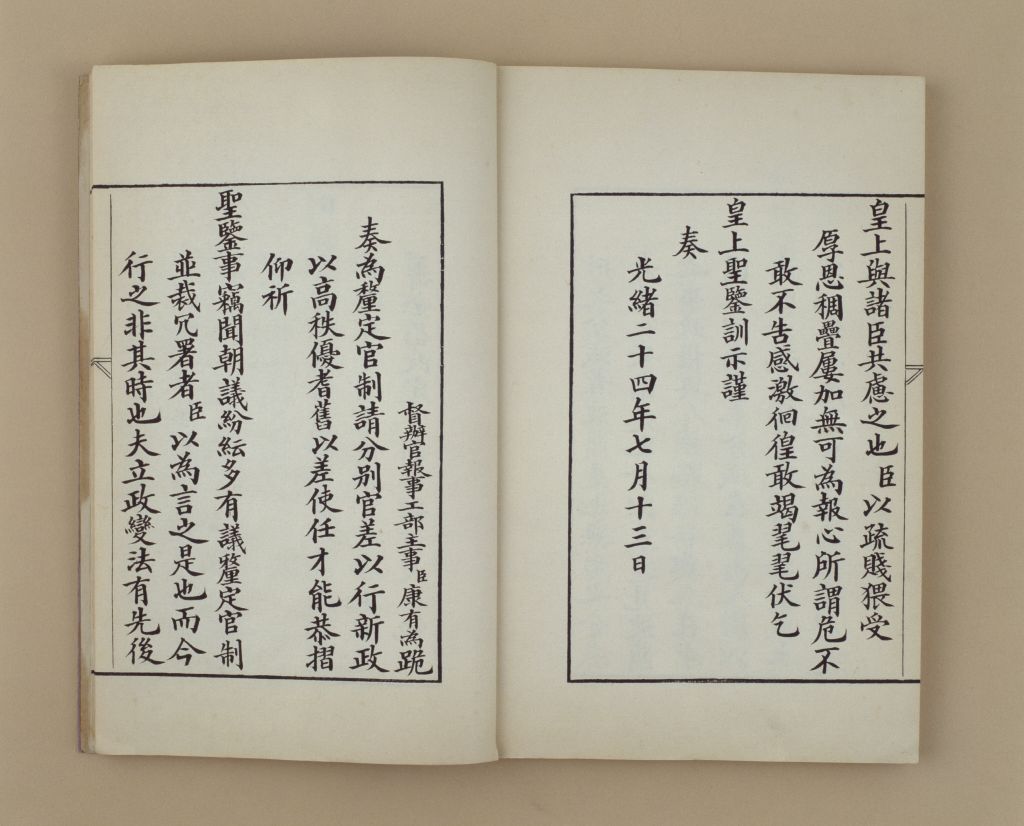 皇上與諸臣共慮之也臣以疏賤猥受
厚恩稠疊屢加無可為報心所謂危不
敢不告感激徊徨敢竭毣毣伏乞
皇上聖鑒訓示謹
奏
光緒二十四年七月十三日
督辦官報事工部主事臣康有為跪
奏為釐定官制請分別官差以行新政
以高秩優耆舊以差使任才能恭摺
仰祈
聖鑒事竊聞朝議紛紜多有議釐定官制
並裁冗署者臣以為言之是也而今
行之非其時也夫立政變法有先後